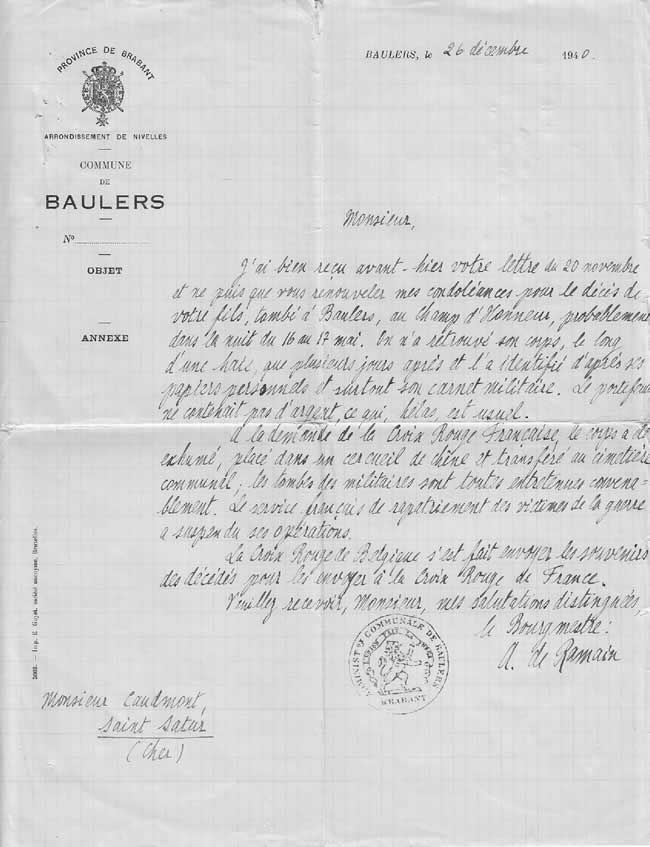 PROVINCE DE BRABANT
ARRONDISSEMENT DE NIVELLES
COMMUNE
DE
BAULERS
No
OBJET
ANNEXE
BAULERS, le 26 décembre 1940.
Monsieur,
J'ai bien reçu avant-hier votre lettre du 20 novembre
et ne puis que vous renouveler mes condoléances pour le décès de
votre fils, tombé à Baulers, au Champ d'Honneur, probablement
dans la nuit du 16 au 17 mai. On n'a retrouvé son corps, le long
d'une haie, que plusieurs jours après et l'a identifié d'après ses
papiers personnels et surtout son carnet militaire. Le portefeui
ne contenait pas d'argent, ce qui, hélas, est usuel.
A la demande de la Croix Rouge Française, le corps a é
exhumé, placé dans un cercueil de chêne et transféré au cimetière
communal; les tombes des militaires sont toutes entretenues convena-
blement. Le service français de rapatriement des victimes de la guerre
a suspendu ses opérations.
La Croix Rouge de Belgique s'est fait envoyer les souvenirs
des décédés pour les envoyer à la Croix Rouge de France.
Veuillez recevoir, Monsieur, mes salutations distinguées,
le Bourgmestre:
A. de Ramain
ADMINISTON COMMUNALE DE BAULERS
L'UNION FAIT LA FORCE
BRABANT
Monsieur Caudmont,
Saint Satur
(Cher)
Imp. E. Guyot, société anonyme, Bruxelles.